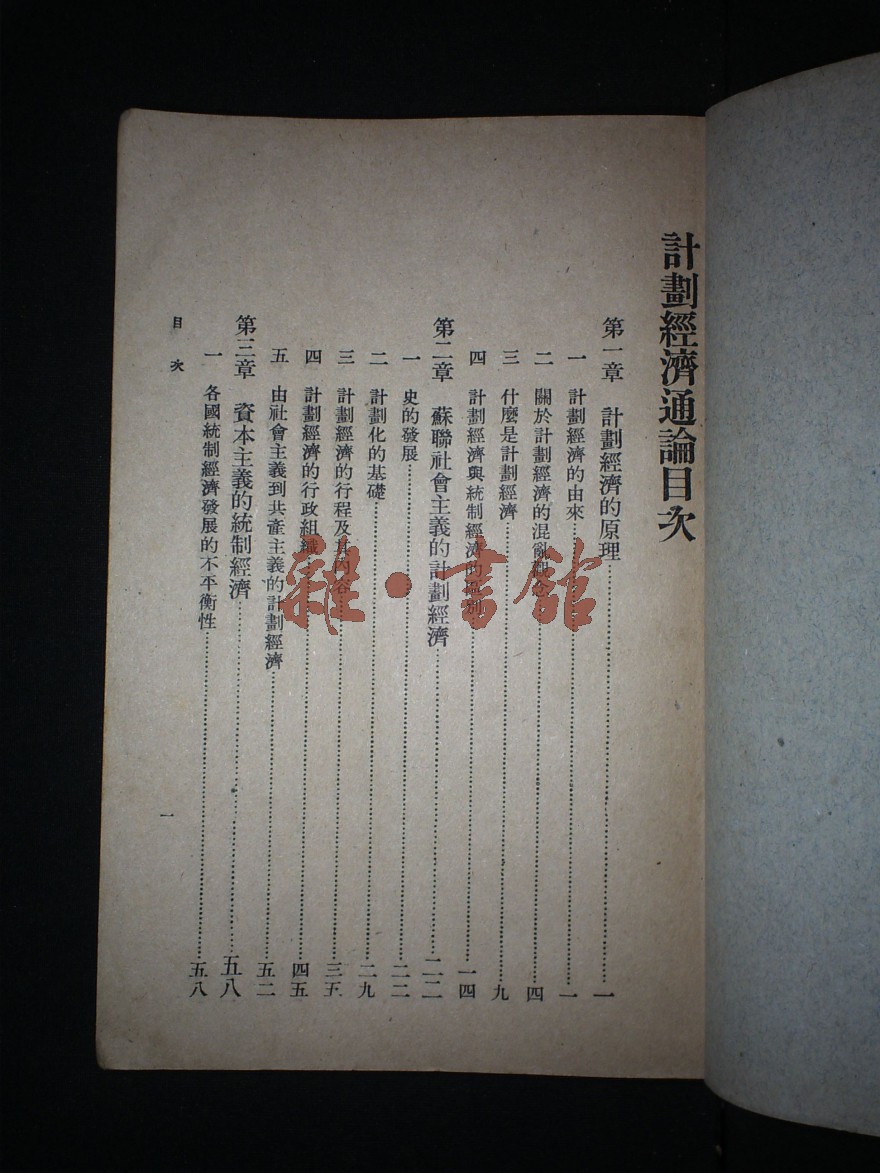 計劃經濟通論目次
第一章 計劃經濟的原理…………一
一 計劃經濟的由來…………一
二 關於計劃經濟的混亂觀念…………四
三 什麼是計劃經濟…………九
四 計劃經濟與統制經濟的區別…………一四
第二章 蘇聯社會主義的計劃經濟…………二二
一 史的發展…………二二
二 計劃化的基礎…………二九
三 計劃經濟的行程及其內容…………三五
四 計劃經濟的行政組織…………四五
五 由社會主義到共產主義的計劃經濟…………五二
第三章 資本主義的統制經濟…………五八
一 各國統制經濟發展的不平衡性…………五八
目次 一
雜·書館